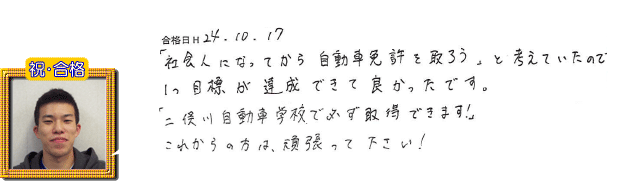 祝・合格
合格日H24.10.17
「社会人になってから自動車免許を取ろう」と考えていたので
1つ目標が達成できて良かったです。
「二俣川自動車学校で必ず取得できます!」
これからの方は、頑張って下さい!